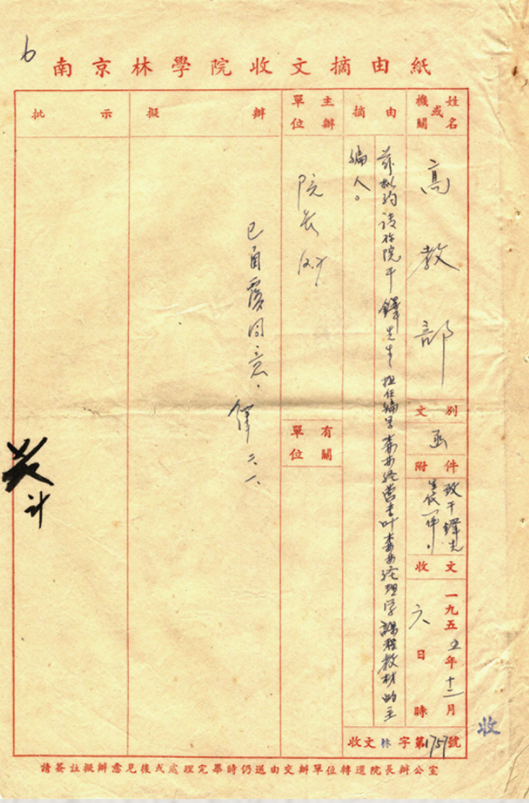 南京林學院收文摘由紙
6
姓名或機關
高教部
文別
函
附件
致干鐸先生代一件。
收文
一九五五年十二月六日 時
收文林字第1757號
摘由
茲擬約請你院干鐸先生担任編写森林经营专业森林经理学課程教材的主
编人。
主辦單位
院长办
有關單位
擬辦
已面复同意。
鐸 六、
批示
收
請簽註擬辦意見後或處理完畢時仍送由交辦單位轉還院長辦公室